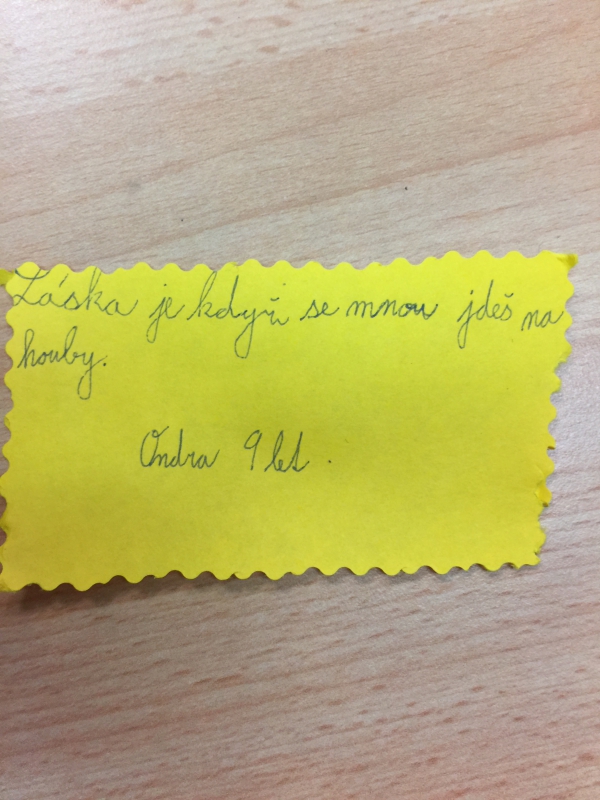 Láska je když se mnou jdeš na
houby.
Ondra 9 let.